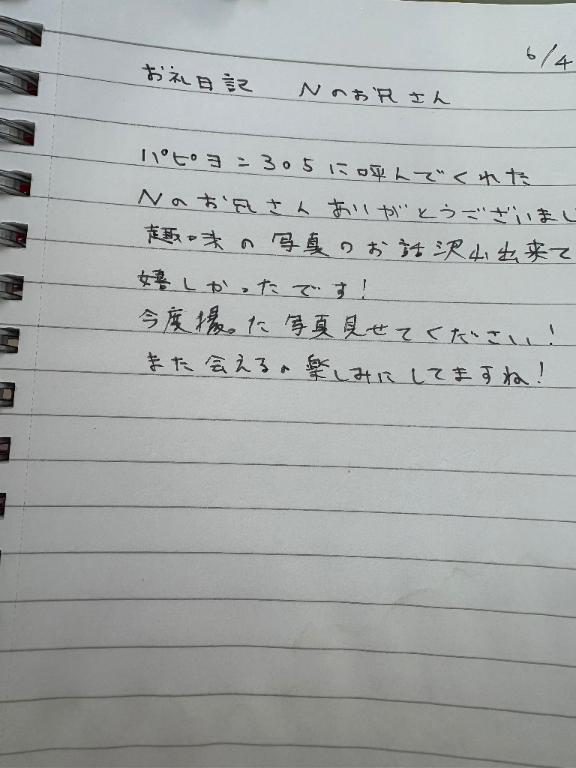 6/4
お礼日記 Nのお兄さん
パピヨン305に呼んでくれた
Nのお兄さんありがとうございまし
趣味の写真のお話沢山出来て
嬉しかったです!
今度撮った写真見せてください!
また会えるの楽しみにしてますね!